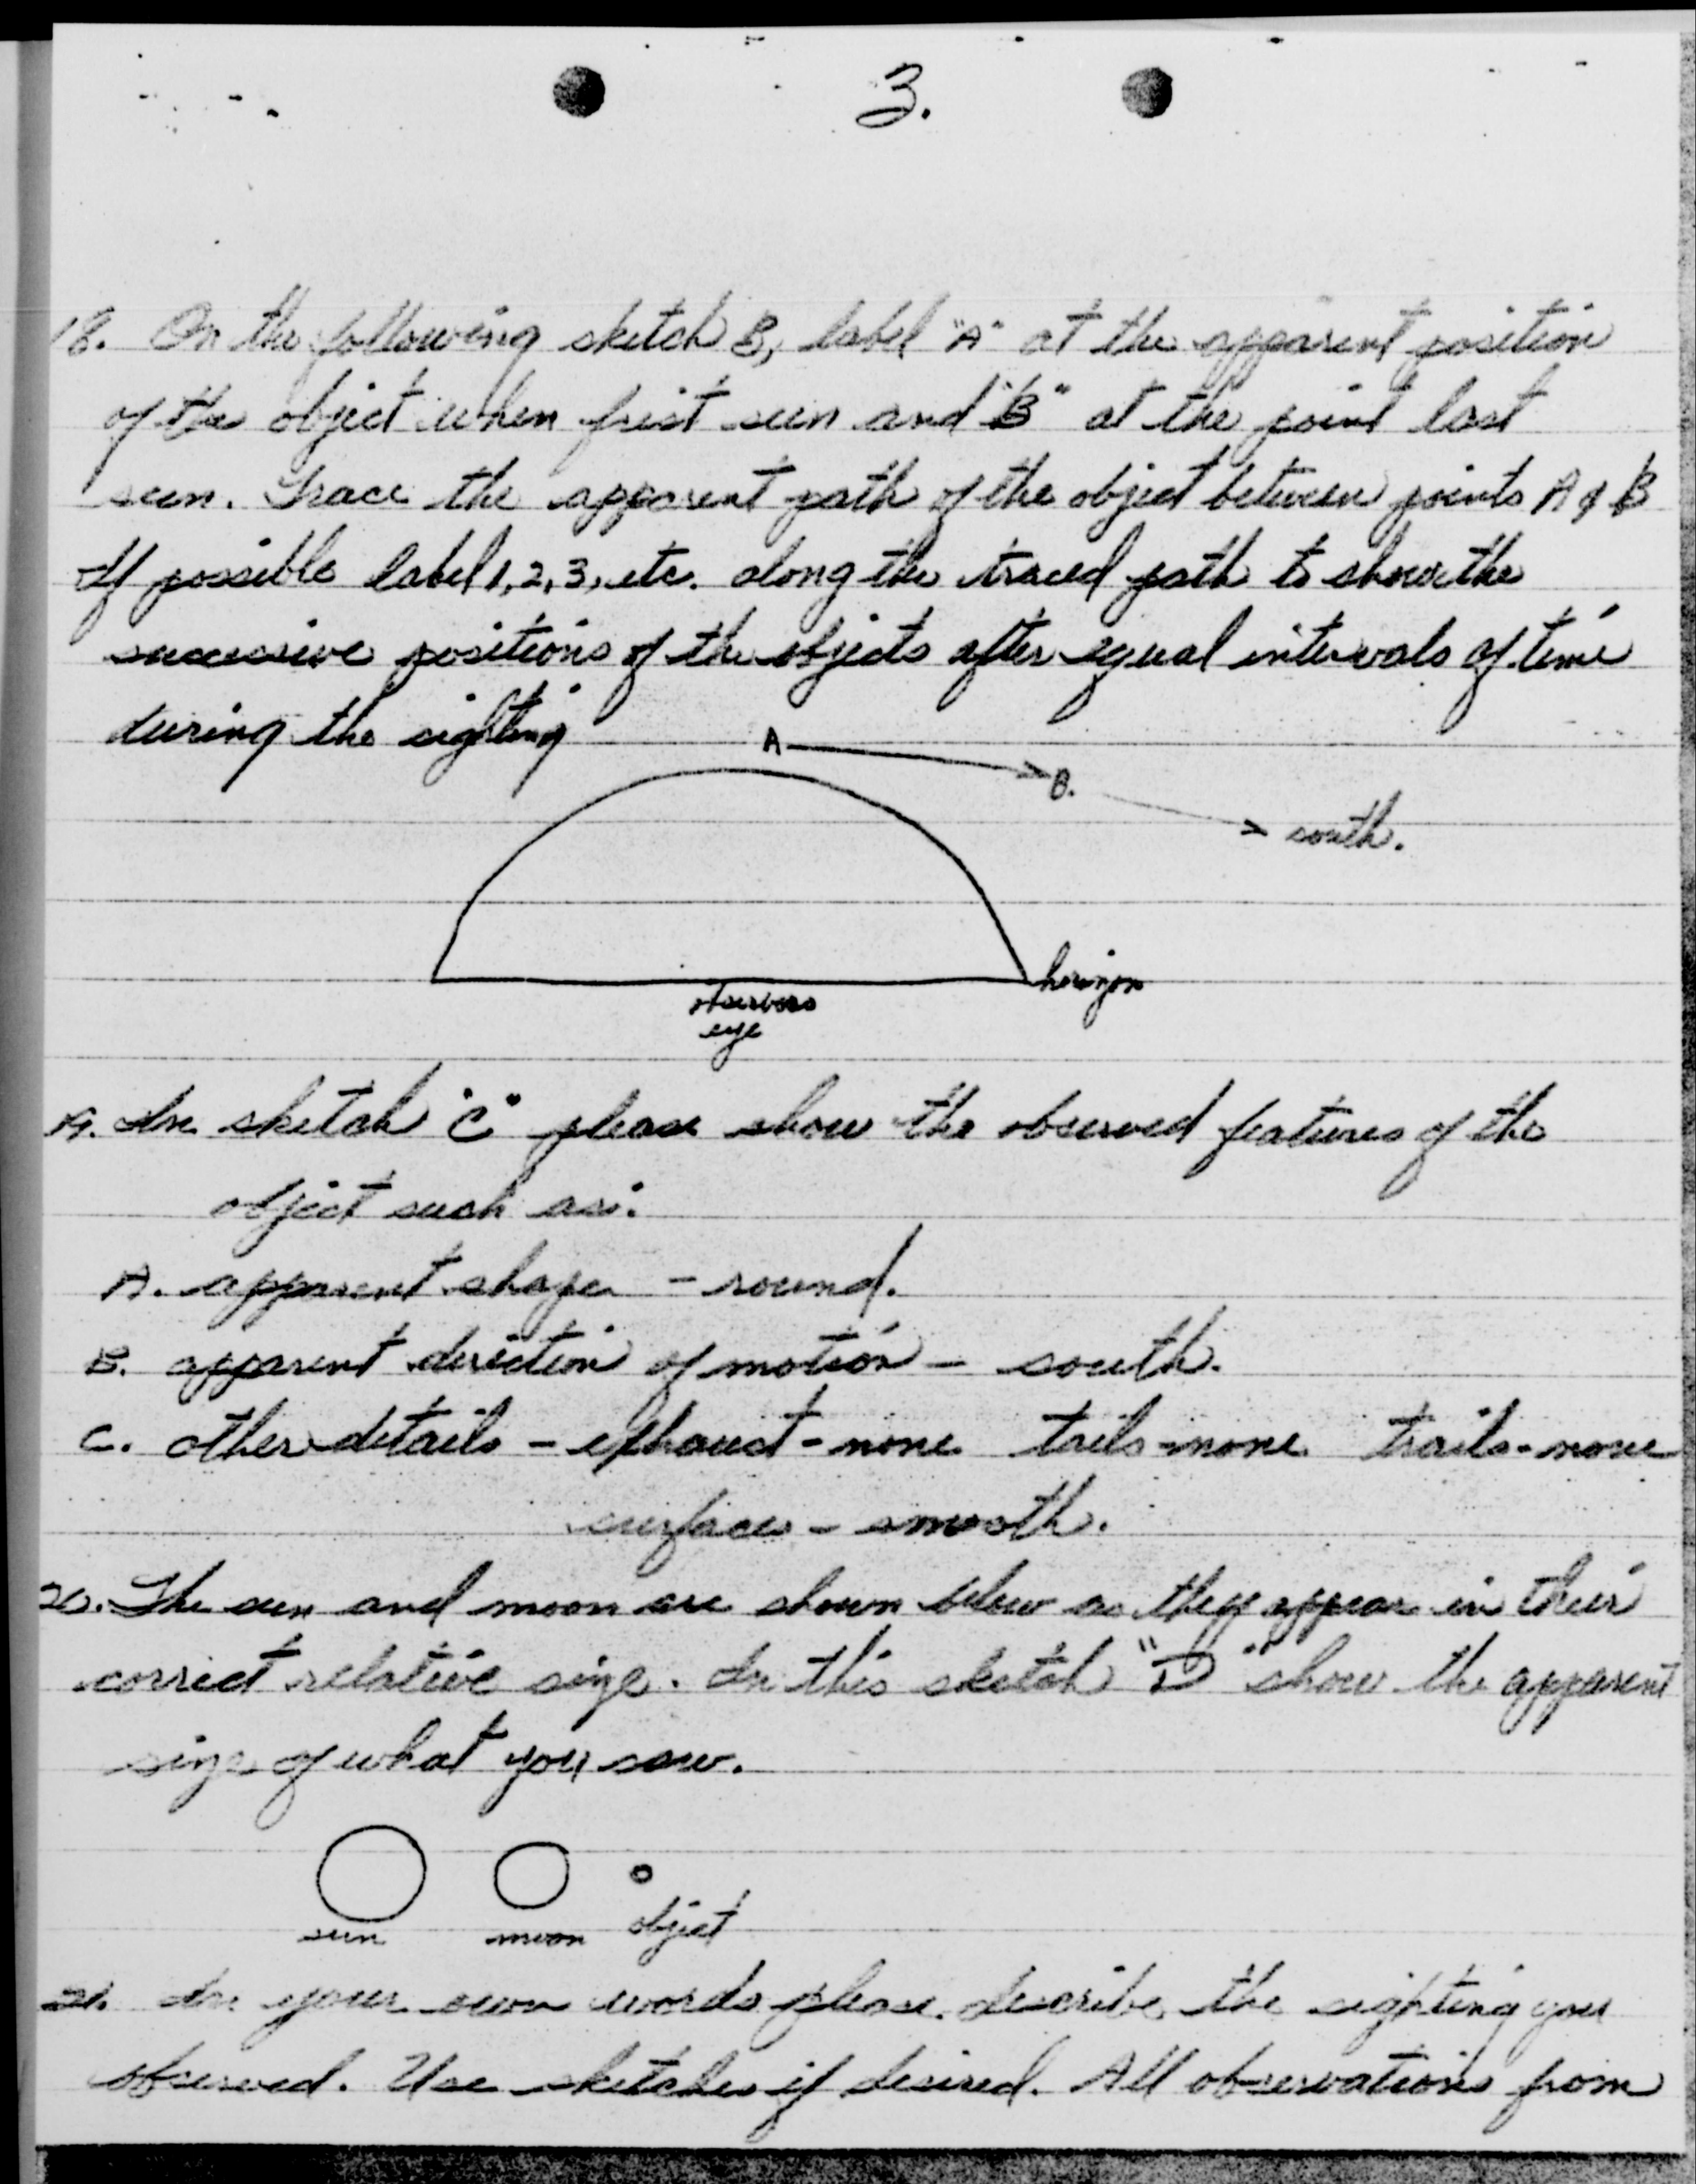 3.
18. On the following sketch B, label "A" at the apparent position
of the object when frist seen and "B" at the point last
seen. Trace the apparent path of the object between points A & B
If possible label 1, 2, 3, etc. along the traced path to show the
successive positions of the objects after equal intervals of time
during the sighting
A
B.
south.
horizon
observers
eye
19. In sketch "C" please show the observed features of the
object such as:
A. apparent shape - round.
B. apparent direction of motion - south.
C. other details - exhaust - none tails - none trails - none
surface - smooth.
20. The sun and moon are shown below as they appear in their
correct relative size. In this sketch "D" show the apparent
size of what you saw.
sun moon object
21. In your own words please describe the sighting you
observed. Use sketches if desired. All observations from